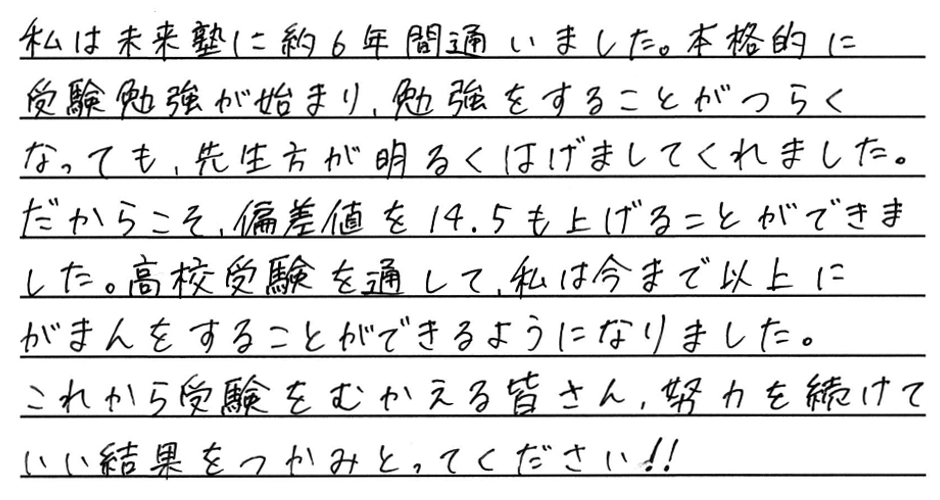 私は未来塾に約6年間通いました。本格的に
受験勉強が始まり、勉強をすることがつらく
なっても、先生方が明るくはげましてくれました。
だからこそ、偏差値を14.5も上げることができま
した。高校受験を通して、私は今まで以上に
がまんをすることができるようになりました。
これから受験をむかえる皆さん、努力を続けて
いい結果をつかみとってください!!